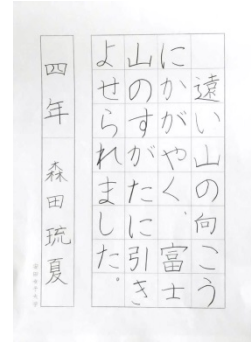 遠い山の向こう
にかがやく、富士
山のすがたに引き
よせられました。
四年 森田琉夏